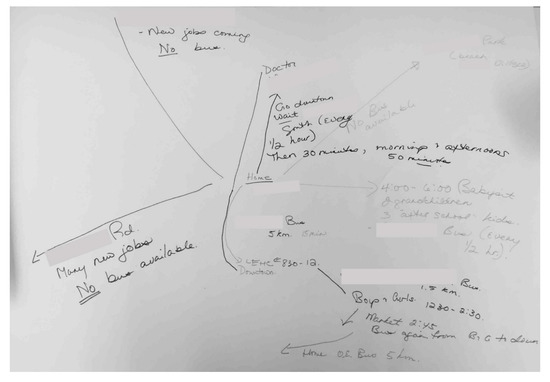 - New jobs coming
No bus.
Doctor
Park
Go downtown
Wait
Smith (every
1/2 hour)
Then 30 minutes, mornings & afternoons
50 minute
No Bus available
Home
4:00 - 6:00 (Babysit
grandchildren
3 after school kids
Bus (every
1/2 hr)
Bus
5 km.
Rd.
Many new jobs
No bus available.
830-12
1.5 km. Bus
Boys & Girls 1230-2:30
Market 2:45
Bus again from B, G to down
Home Bus 5 km.